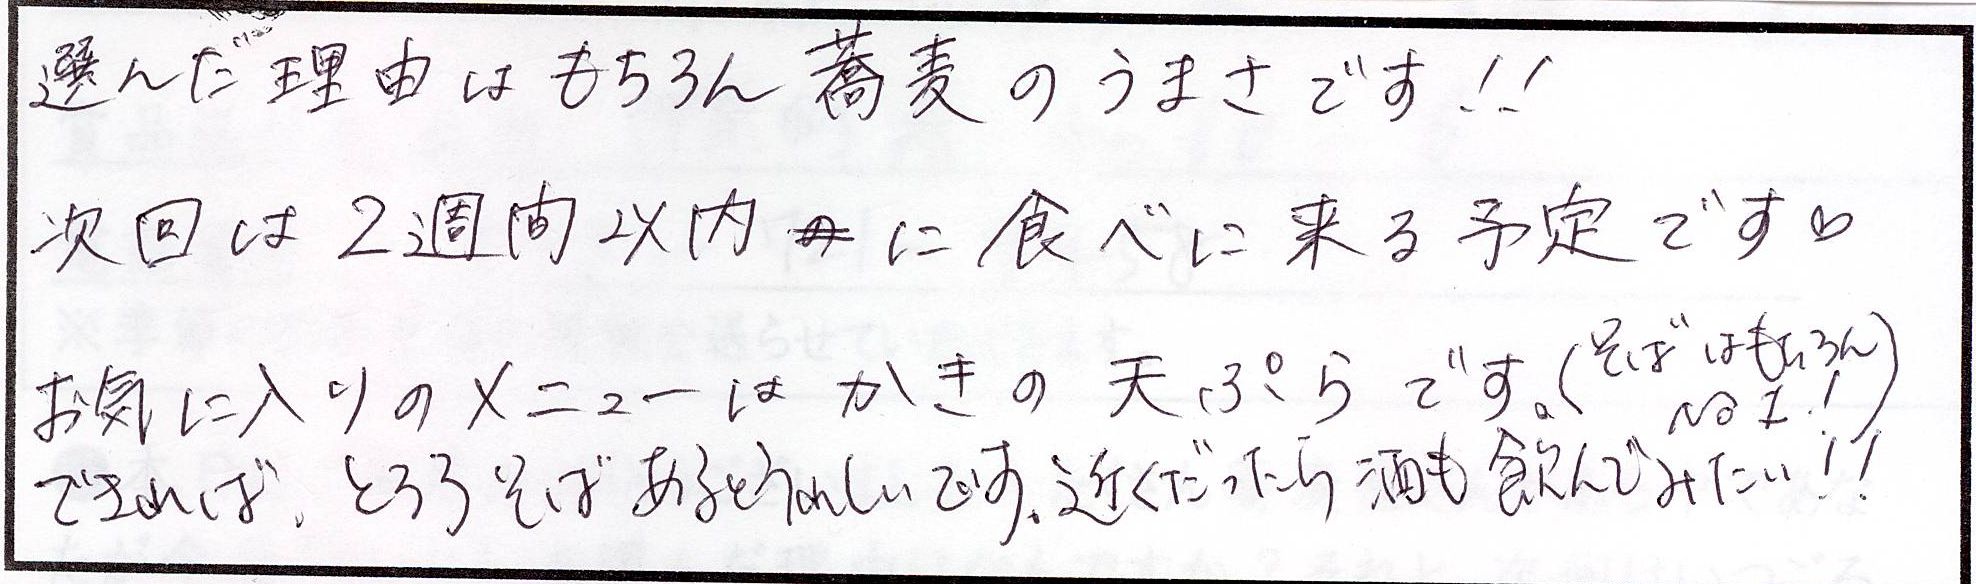 選んだ理由はもちろん蕎麦のうまさです!!
次回は2週間以内に食べに来る予定です♡
お気に入りのメニューはかきの天ぷらです。(そばはもちろんNo1!)
できれば、とろろそばあるとうれしいです。近くだったら酒も飲んでみたい!!